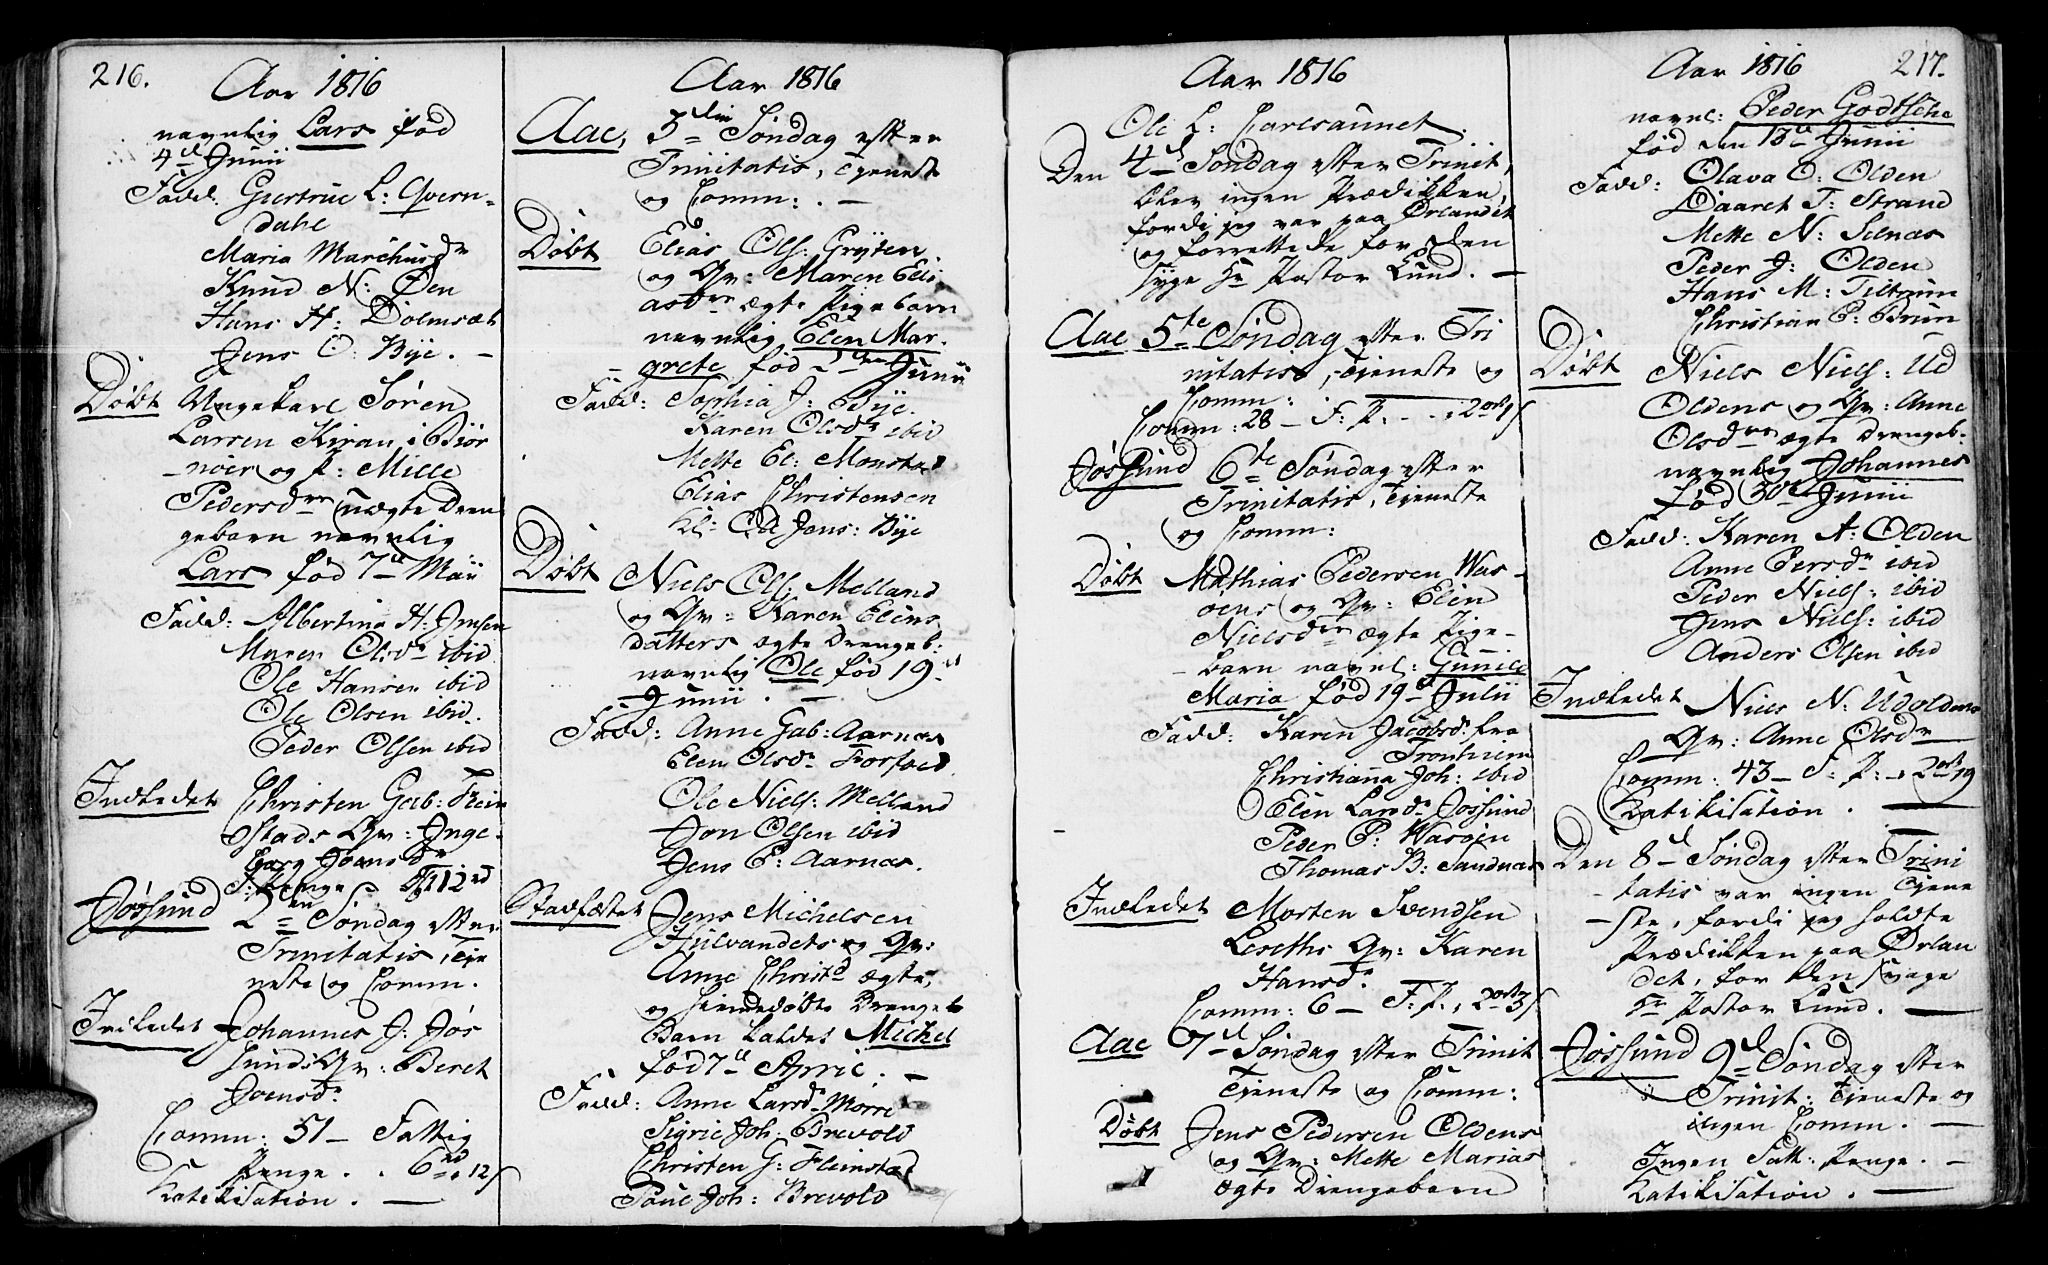 216.
Aar 1816
navnlig Lars fød
4d Junii
Fadd: Giertrue L: Qvern-
dahl
Maria Marchusdr
Knud N: Øen
Hans H: Dolmsæt
Jens O: Bye. –
Døbt Ungekarl Søren
Larsen Kiran i Biør
nøer og p: Mille
Pedersdr uægte Dren
gebarn navnlig
Lars fød 7de Maii
Fadd: Albertina H: Jmsen
Maren Olsdr ibid
Ole Hansen ibid
Ole Olsen ibid.
Peder Olsen ibid
Indledet Christen Gab: Flein
stads Qv: Inge-
borg Joensdr
F: Penge 12
Jøssund 2den Søndag efter
Trinitatis, Tje
neste og Comm.
Indledet Johannes J: Jøs
sunds Qv: Beret
Joensdr
Comm: 51 – Fattig
Penge . . 6 12s
Katikisation . —
Aar 1816
Aae, 3die Søndag efter
Trinitatis, Tjeneste
og Comm: . –
Døbt Elias Ols: Gryten
og Qv: Maren Eli
asdr ægte Pigebarn
navnlig Elen Mar-
grete fød Junii
Fadd: Sophia J: Bye.
Karen Olsdr ibid
Mette El: Monstad
Elias Christensen
Kl: Jens: Bye
Døbt Niels Ols: Melland
og Qv: Karen Elins
datters ægte Drengeb:
navnlig Ole fød 19d
Junii . –
Fadd: Anne Gab: Aarnes
Elen Olsdr Forfod
Ole Niels: Melland
Jon Olsen ibid
Jens E: Aarnæs.
Stadfæstet Jens Michelsen
Hulvandets og Qv:
Anne Christd ægte,
og hjemedøbte Drenge
Barn kaldet Michel
fød 7de April. –
Fadd: Anne Larsdr Morre
Sigrie Joh: Brevold
Christen G: Fleinstad
Paul Joh: Brevold
Aar 1816
Ole L: Carlsaunet.
Den 4d Søndag efter Trinit,
blev ingen Prædikken,
fordi jeg var paa Ørlandet
og forrettede for den
syge Hr Pastor Lund. –
Aae 5te Søndag efter Tri
nitatis, Tjeneste og
Comm:
Comm: 28 – F: P. - 2ort 1s
Jøssund 6te Søndag efter
Trinitatis, Tjeneste
og Comm:
Døbt Mathias Pedersen Was-
øens og Qv: Elen
Nielsdr ægte Pige-
barn navnl: Gunild
Maria fød 19d Julii
Fadd: Karen Jacobsdr fra
Tronhiem
Christianna Joh: ibid
Elen Larsdr Jøssund
Peder P: Wasøen
Thomas B: Sandnæs
Indledet Morten Svendsen
Leseths Qv: Karen
Hansdr
Comm: 6 – F: P., 2ort 3s
Aae 7d Søndag efter Trinit
Tjeneste og Comm:
Døbt Jens Pedersen Oldens
og Qv: Mette Marias
ægte Drengebarn
Aar 1816
217.
navnl: Peder Godtsche
fød den 18d Junii
Fadd: Olava O: Olden
Daaret T: Strand
Mette N: Selnæs
Peder J: Olden
Hans M: Tiltrum
Christian P: Brun
Døbt Niels Niels: Ud
Oldens og Qv: Anne
Olsdrs ægte Drengeb-
navnlig Johannes
fød 30d Junii
Fadd: Karen A: Olden
Anne Persdr ibid
Peder Niels: ibid
Jens Niels: ibid
Anders Olsen ibid
Indledet Niels N: Udoldens
Qv: Anne Olsdr
Comm: 43 – F: P: 2ort 19
Katikisation . —
Den 8d Søndag efter Trini
tatis var ingen Tjene
ste, fordi jeg holdte
Prædikken paa Ørlan
det, for den svage
Hr Pastor Lund. —
Jøssund 9d Søndag efter
Trinit: Tjeneste og
ingen Comm. —
Ingen Fatt: Penge. –
Katikisation . —